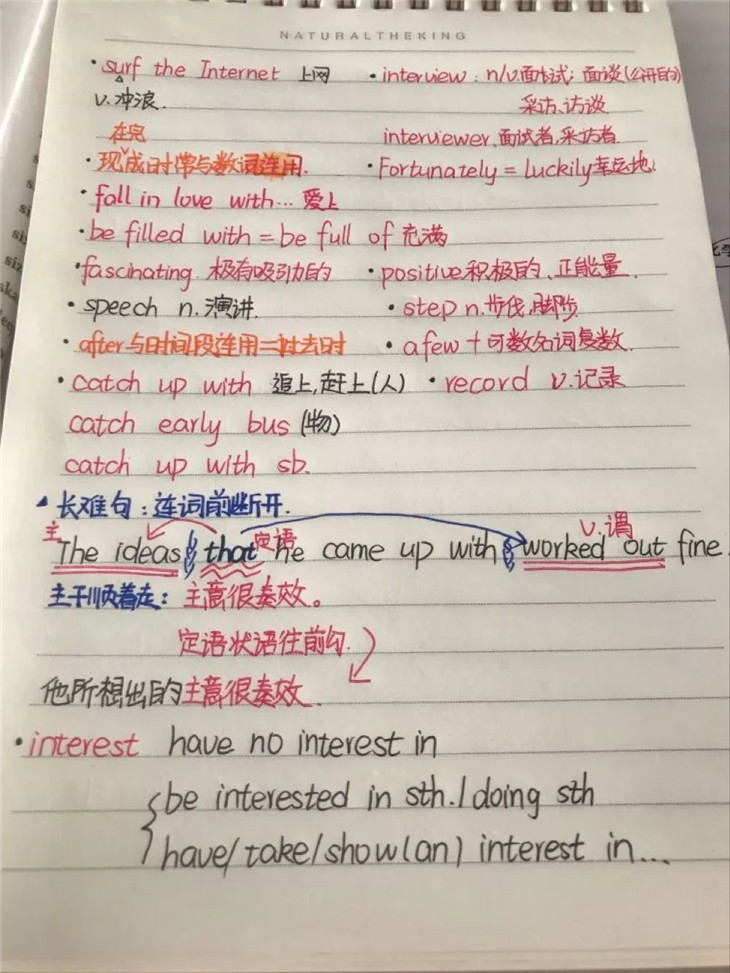 NATURALTHEKING
·surf the Internet 上网 ·interview: n/v.面试; 面谈(公开的)
v.冲浪. 采访.访谈
在完 interviewer.面试者,采访者.
·现成时常与数词连用. ·Fortunately = Luckily幸运地.
·fall in love with... 爱上
·be filled with = be full of 充满
·fascinating. 极有吸引力的 ·positive积极的、正能量.
·speech n.演讲. ·step n.步伐,脚步.
·after与时间段连用=过去时 ·a few+可数名词复数.
·catch up with 追上,赶上(人) ·record v.记录
catch early bus (物)
catch up with sb.
长难句:连词前断开.
主 定语 v.谓
The ideas that he came up with worked out fine.
主干顺着走: 主意很奏效。
定语状语往前勾.
他所想出的主意很奏效.
·interest have no interest in
{be interested in sth./doing sth
have/take/show(an) interest in...